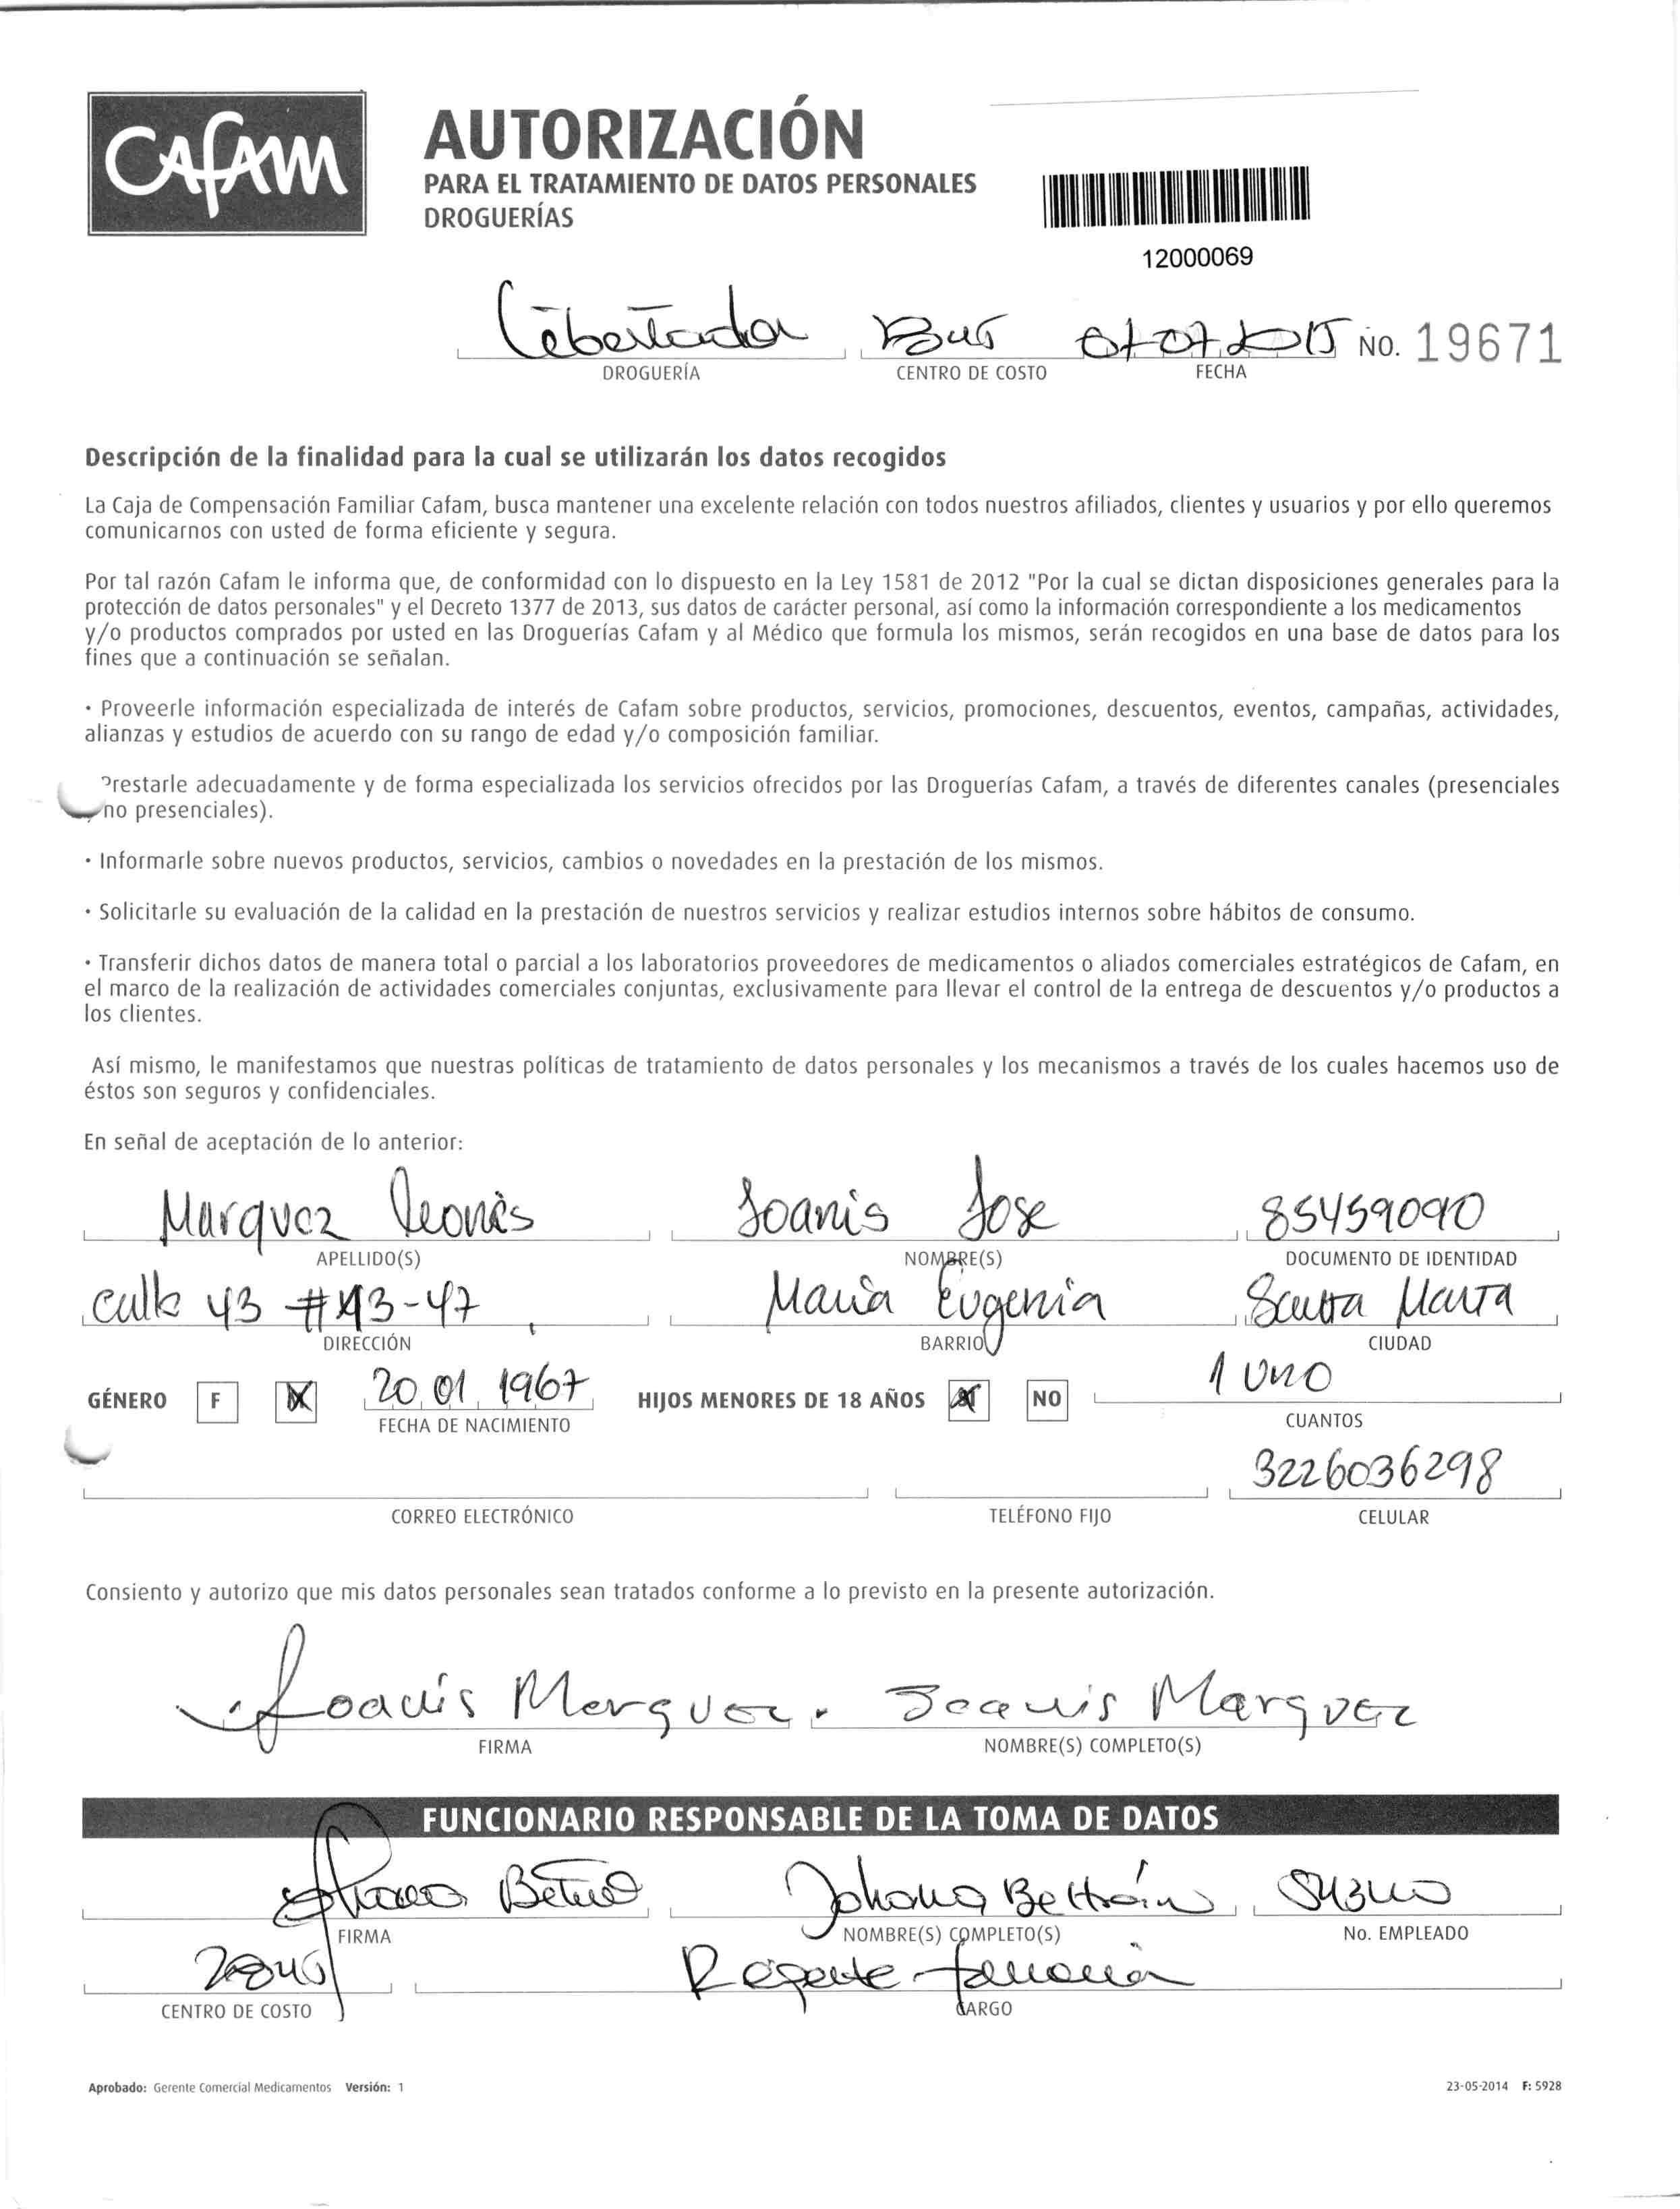 CAFAM
AUTORIZACIÓN
PARA EL TRATAMIENTO DE DATOS PERSONALES
DROGUERÍAS
12000069
Libertador 01-07-2015 No. 19671
DROGUERÍA CENTRO DE COSTO FECHA
Descripción de la finalidad para la cual se utilizarán los datos recogidos
La Caja de Compensación Familiar Cafam, busca mantener una excelente relación con todos nuestros afiliados, clientes y usuarios y por ello queremos
comunicarnos con usted de forma eficiente y segura.
Por tal razón Cafam le informa que, de conformidad con lo dispuesto en la Ley 1581 de 2012 "Por la cual se dictan disposiciones generales para la
protección de datos personales" y el Decreto 1377 de 2013, sus datos de carácter personal, así como la información correspondiente a los medicamentos
y/o productos comprados por usted en las Droguerías Cafam y al Médico que formula los mismos, serán recogidos en una base de datos para los
fines que a continuación se señalan.
· Proveerle información especializada de interés de Cafam sobre productos, servicios, promociones, descuentos, eventos, campañas, actividades,
alianzas y estudios de acuerdo con su rango de edad y/o composición familiar.
Prestarle adecuadamente y de forma especializada los servicios ofrecidos por las Droguerías Cafam, a través de diferentes canales (presenciales
y no presenciales).
· Informarle sobre nuevos productos, servicios, cambios o novedades en la prestación de los mismos.
· Solicitarle su evaluación de la calidad en la prestación de nuestros servicios y realizar estudios internos sobre hábitos de consumo.
· Transferir dichos datos de manera total o parcial a los laboratorios proveedores de medicamentos o aliados comerciales estratégicos de Cafam, en
el marco de la realización de actividades comerciales conjuntas, exclusivamente para llevar el control de la entrega de descuentos y/o productos a
los clientes.
Así mismo, le manifestamos que nuestras políticas de tratamiento de datos personales y los mecanismos a través de los cuales hacemos uso de
éstos son seguros y confidenciales.
En señal de aceptación de lo anterior:
Marquez Leones Joanis Jose 85459090
APELLIDO(S) NOMBRE(S) DOCUMENTO DE IDENTIDAD
calle 43 #43-47 Maria Eugenia Santa Marta
DIRECCIÓN BARRIO CIUDAD
GÉNERO F 20 01 1967 HIJOS MENORES DE 18 AÑOS NO 1 uno
FECHA DE NACIMIENTO CUANTOS
3226036298
CORREO ELECTRÓNICO TELÉFONO FIJO CELULAR
Consiento y autorizo que mis datos personales sean tratados conforme a lo previsto en la presente autorización.
Joanis Marquez. Joanis Marquez
FIRMA NOMBRE(S) COMPLETO(S)
FUNCIONARIO RESPONSABLE DE LA TOMA DE DATOS
Johana Beltrán
FIRMA NOMBRE(S) COMPLETO(S) No. EMPLEADO
Regente farmacia
CENTRO DE COSTO CARGO
Aprobado: Gerente Comercial Medicamentos Versión: 1 23-05-2014 F: 5928